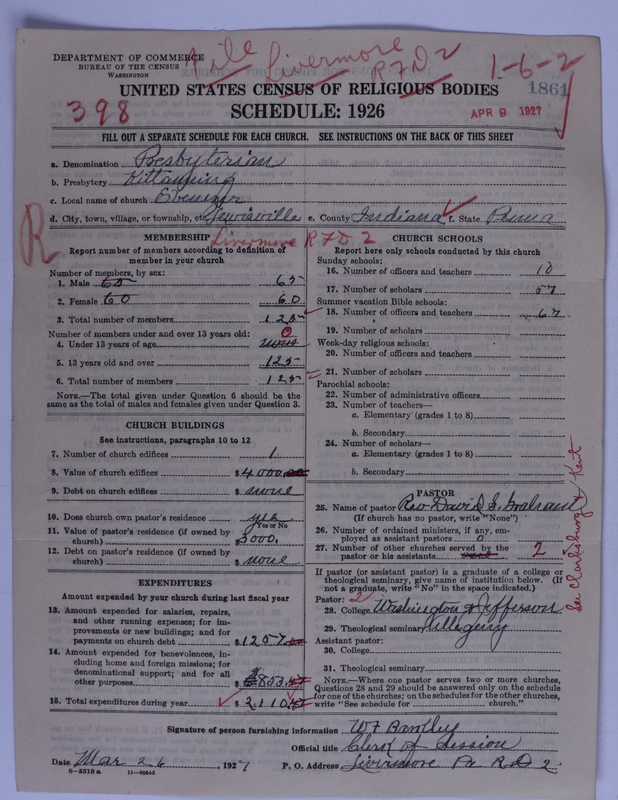 DEPARTMENT OF COMMERCE
BUREAU OF THE CENSUS
WASHINGTON
File Livermore
RFD 2
1-6-2
1861
398
UNITED STATES CENSUS OF RELIGIOUS BODIES
SCHEDULE: 1926
APR 9 1927
FILL OUT A SEPARATE SCHEDULE FOR EACH CHURCH. SEE INSTRUCTIONS ON THE BACK OF THIS SHEET
a. Denomination Presbyterian
b. Presbytery Kittanning
c. Local name of church Ebenezer
d. City, town, village, or township, etc. Lewisville e. County Indiana f. State Penna
R
Livermore RFD 2
MEMBERSHIP
Report number of members according to definition of
member in your church
Number of members, by sex:
1. Male 65 65
2. Female 60 60
3. Total number of members 125
Number of members under and over 13 years old: 0
4. Under 13 years of age none
5. 13 years old and over 125
6. Total number of members 125
NOTE.—The total given under Question 6 should be
same as the total of males and females given under Question 3.
CHURCH BUILDINGS
See instructions, paragraphs 10 to 12
7. Number of church edifices 1
8. Value of church edifices $4000.00
9. Debt on church edifices $ none
10. Does church own pastor's residence yes
Yes or No
11. Value of pastor's residence (if owned by
church) 3000.
12. Debt on pastor's residence (if owned by
church) $ none
EXPENDITURES
Amount expended by your church during last fiscal year
13. Amount expended for salaries, repairs,
and other running expenses; for im-
provements or new buildings; and for
payments on church debt $1257
14. Amount expended for benevolences, in-
cluding home and foreign missions; for
denominational support; and for all
other purposes $853.
15. Total expenditures during year $2110.
CHURCH SCHOOLS
Report here only schools conducted by this church
Sunday schools:
16. Number of officers and teachers 10
17. Number of scholars 57
Summer vacation Bible schools:
18. Number of officers and teachers 67
19. Number of scholars
Week-day religious schools:
20. Number of officers and teachers
21. Number of scholars
Parochial schools:
22. Number of administrative officers
23. Number of teachers—
a. Elementary (grades 1 to 8)
b. Secondary
24. Number of scholars—
a. Elementary (grades 1 to 8)
b. Secondary
PASTOR
25. Name of pastor Rev David S. Graham
(If church has no pastor, write "None")
26. Number of ordained ministers, if any, em-
ployed as assistant pastors 0
27. Number of other churches served by the
pastor or his assistants 2
See Clarksburg & Kent
If pastor (or assistant pastor) is a graduate of a college or
theological seminary, give name of institution below. (If
not a graduate, write "No" in the space indicated.)
Pastor:
28. College Washington & Jefferson
29. Theological seminary Allegheny
Assistant pastor:
30. College
31. Theological seminary
NOTE.—Where one pastor serves two or more churches,
Questions 28 and 29 should be answered only on the schedule
for one of the churches; on the schedules for the other churches,
write "See schedule for church."
Signature of person furnishing information W F
Official title Clerk of Session
Date Mar 26, 1927 P. O. Address Livermore Pa RD 2.
8-5518 a 11-9094b